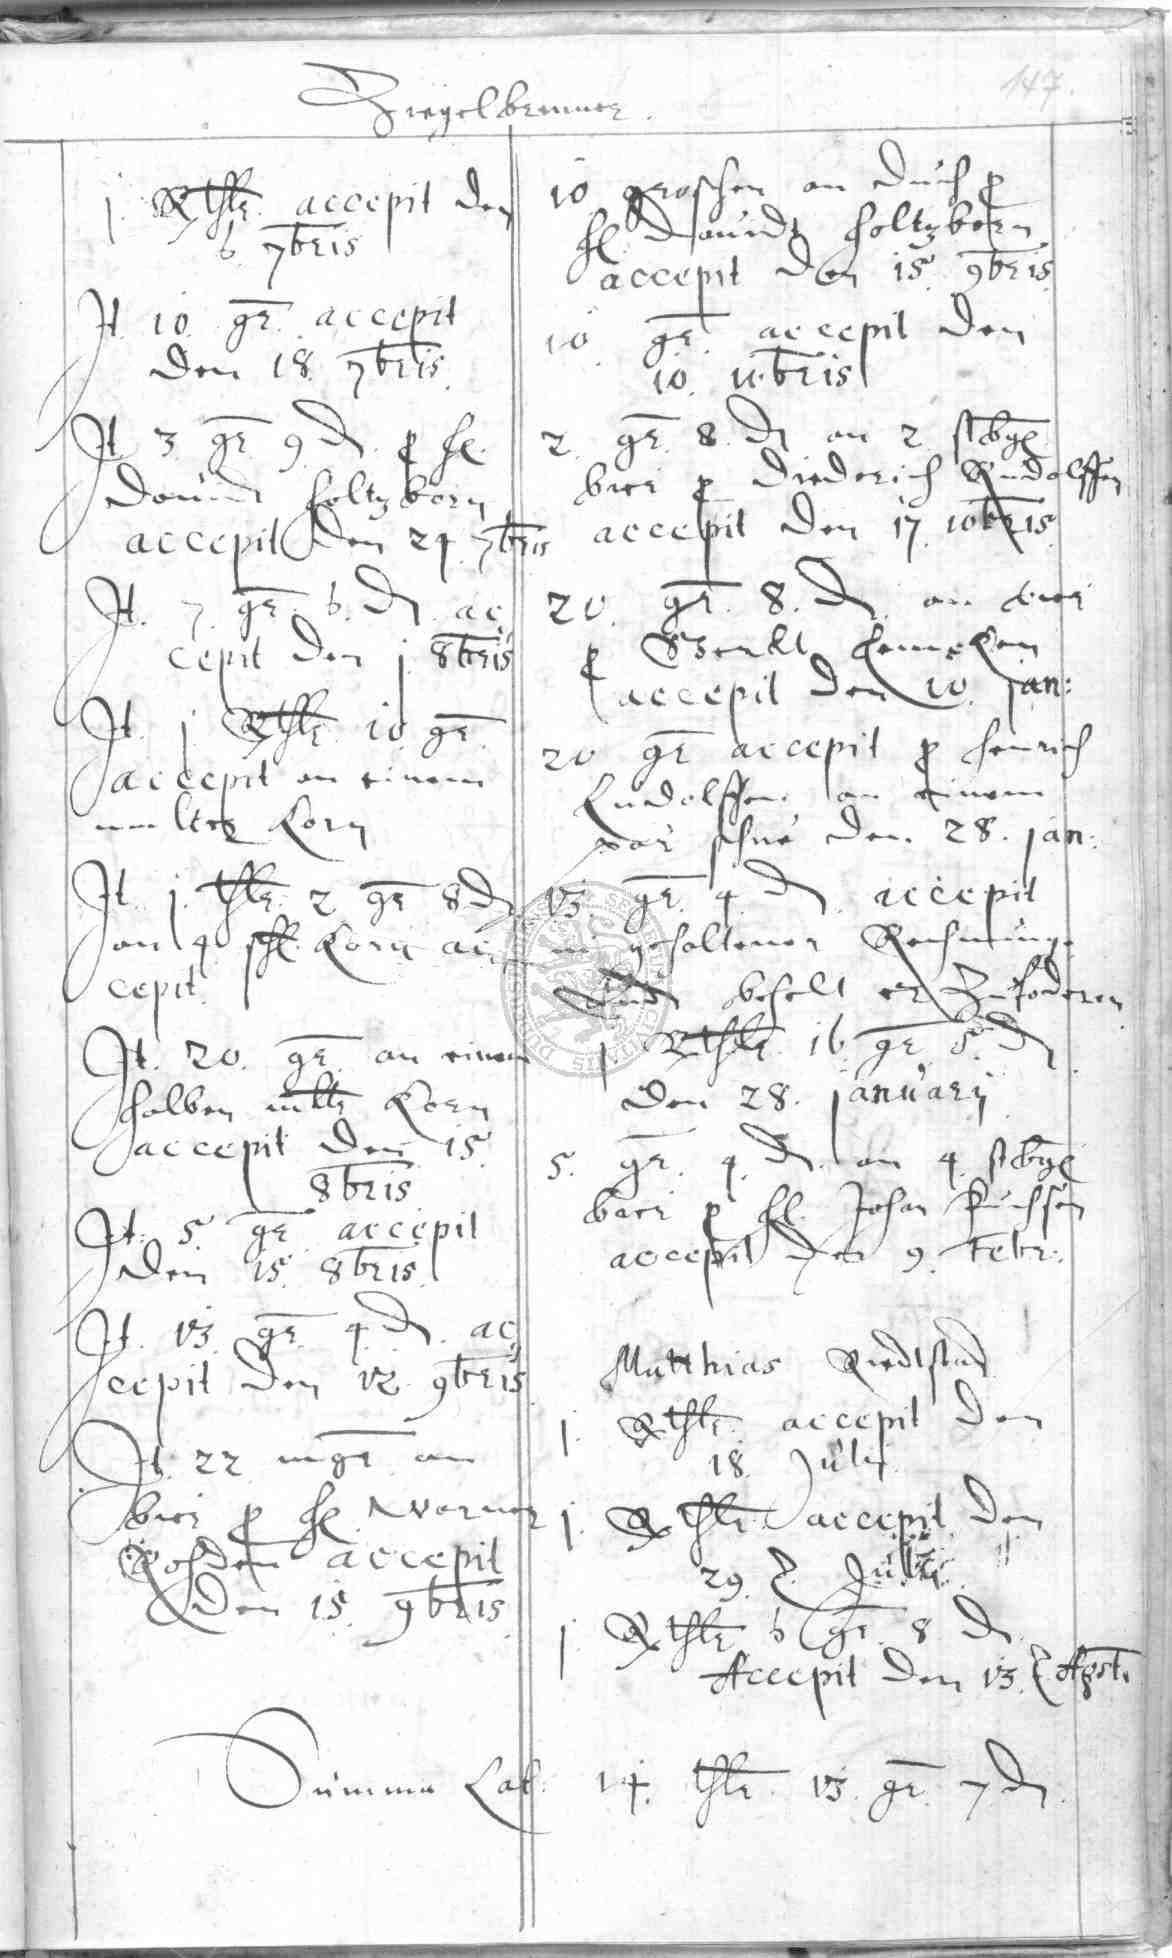 147.
Ziegelbrenner.
j. Rthlr. accepit den
6. 7bris
It. 10. gr. accepit
den 18. 7bris.
It. 3 gr. 9 d. p H.
Dauidt Holtzborn
accepit den 24. 7bris
It. 7. gr. 6. d. ac
cepit den j. 8bris
It. j. Rthlr. 10 gr.
accepit an einem
molter Korn
It. j. thlr. 2 gr 8 d
an 4 schl. Korn ac
cepit.
It. 20. gr. an einem
halben mltr Korn
accepit den 15.
8bris
It. 5. gr. accepit
den 15. 8bris.
It. 13. gr. 4. d. ac
cepit den 12. 9bris
It. 22 mgr. an
bier p H. Warner
accepit
den 15. 9bris
10 groschen an duch p
H. Dauidt Holtzborn
accepit den 15. 9bris
10. gr. accepit den
10. 10bris
2. gr. 8. d an 2. stbg
bier p Diederich Rudolffen
accepit den 17. 10bris
20. gr. 8. d. an bier
p Henneken
accepit den 10. jan:
20 gr accepit p Henrich
Ludolffen an einem
par schue den. 28. jan:
13. gr. 4. d. accepit
gehaltener Rechnunge
vnd behelt er Zufoderen
j Rthlr. 16. gr. 5. d
den 28. januarij
5. gr. 4. d. an 4. stbg
bier p H. Johan
accepit den 9. Febr:
Matthias Riedtstad
j. Rthlr. accepit den
18. Julij
j. Rthlr. accepit den
29. Julij
j Rthlr 6 gr. 8 d
Accepit den 13. Agst.
Summa Lat. 14. thlr. 13. gr. 7. d